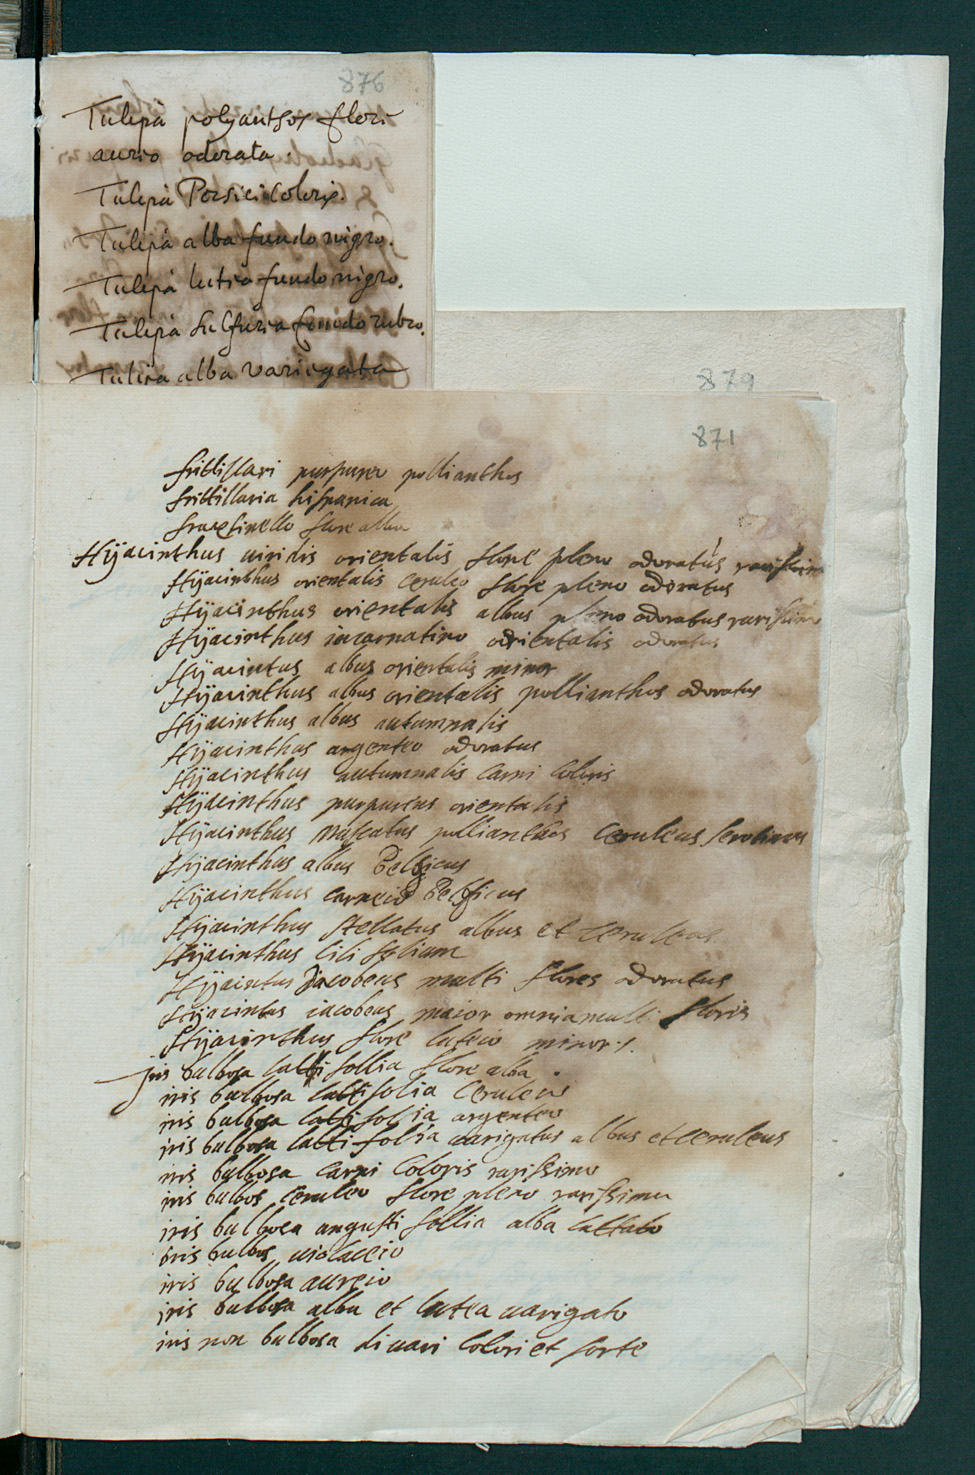 876
Tulipa polyanthos flore
aureo odorata.
Tulipa Persici coloris.
Tulipa alba fundo nigro.
Tulipa lutea fundo nigro.
Tulipa sulfurea fundo rubro.
Tulipa alba variegata
879
871
frittillari purpureo pollianthos
frittillaria hispanica
fraxsinello flore albo
Hÿacinthus uiridis orientalis flore pleno odoratus rarissimo
Hÿacinthus orientalis ceruleo flore pleno odoratus
Hÿacinthus orientalis albus pleno odoratus rarissimo
Hÿacinthus incarnatino orientalis odoratus
Hÿacintus albus orientalis minor
Hÿacinthus albus orientalis pollianthos odoratus
Hÿacinthus albus autumnalis
Hÿacinthus argenteo odoratus
Hÿacinthus autumnalis carni coloris
Hÿacinthus purpurius orientalis
Hÿacinthus muscatus pollianthos ceruleus serotinus
Hÿacinthus albus Belgicus
Hÿacinthus carneio Belgicus
Hÿacinthus stellatus albus et ceruleus
Hÿacinthus lili folium
Hÿacintus Jacobeus multi flores odoratus
Hÿacintus iacobeus maior omnia multi floris
Hÿacinthus flore luteio minori.
iris bulbosa latti follia flore alba
iris bulbosa lattifolia ceruleio
iris bulbosa lattifolia argenteo
iris bulbosa latti folia uarigatus albus et ceruleus
iris bulbosa carni coloris rarissimo
iris bulbos ceruleo flore pleno rarissimo
iris bulbosa angusti follia alba lattato
iris bulbos uiolaceio
iris bulbosa aureio
iris bulbosa alba et lutea uarigato
iris non bulbosa di uari colori et sorte